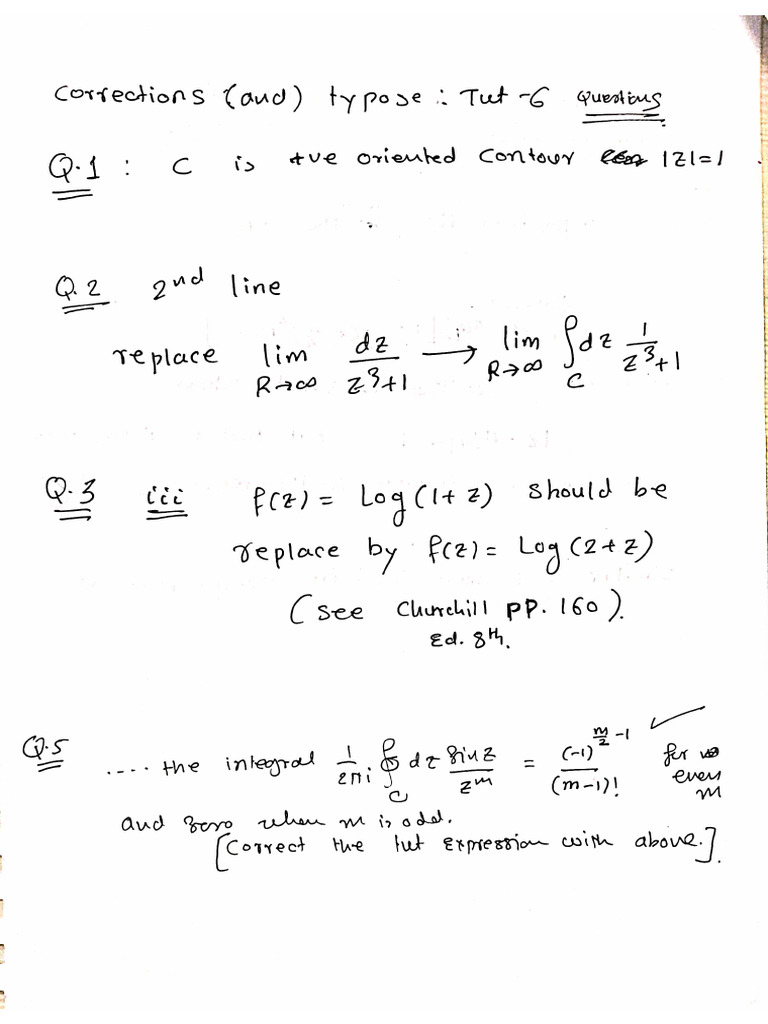 Corrections (and) typose : Tut-6 Questions
Q.1 : C is +ve oriented contour |z|=1.
Q.2 2nd line
replace lim R→∞ dz/(z³+1) → lim R→∞ ∫_C dz 1/(z³+1)
Q.3 iii f(z) = Log(1+z) should be
replace by f(z) = Log(2+z)
(see Churchill PP. 160).
Ed. 8th.
Q.5 .... the integral 1/(2πi) ∮_C dz sinz/z^m = (-1)^(m/2 -1)/(m-1)! ✓ for even m
and zero when m is odd.
[Correct the tut expression with above.].